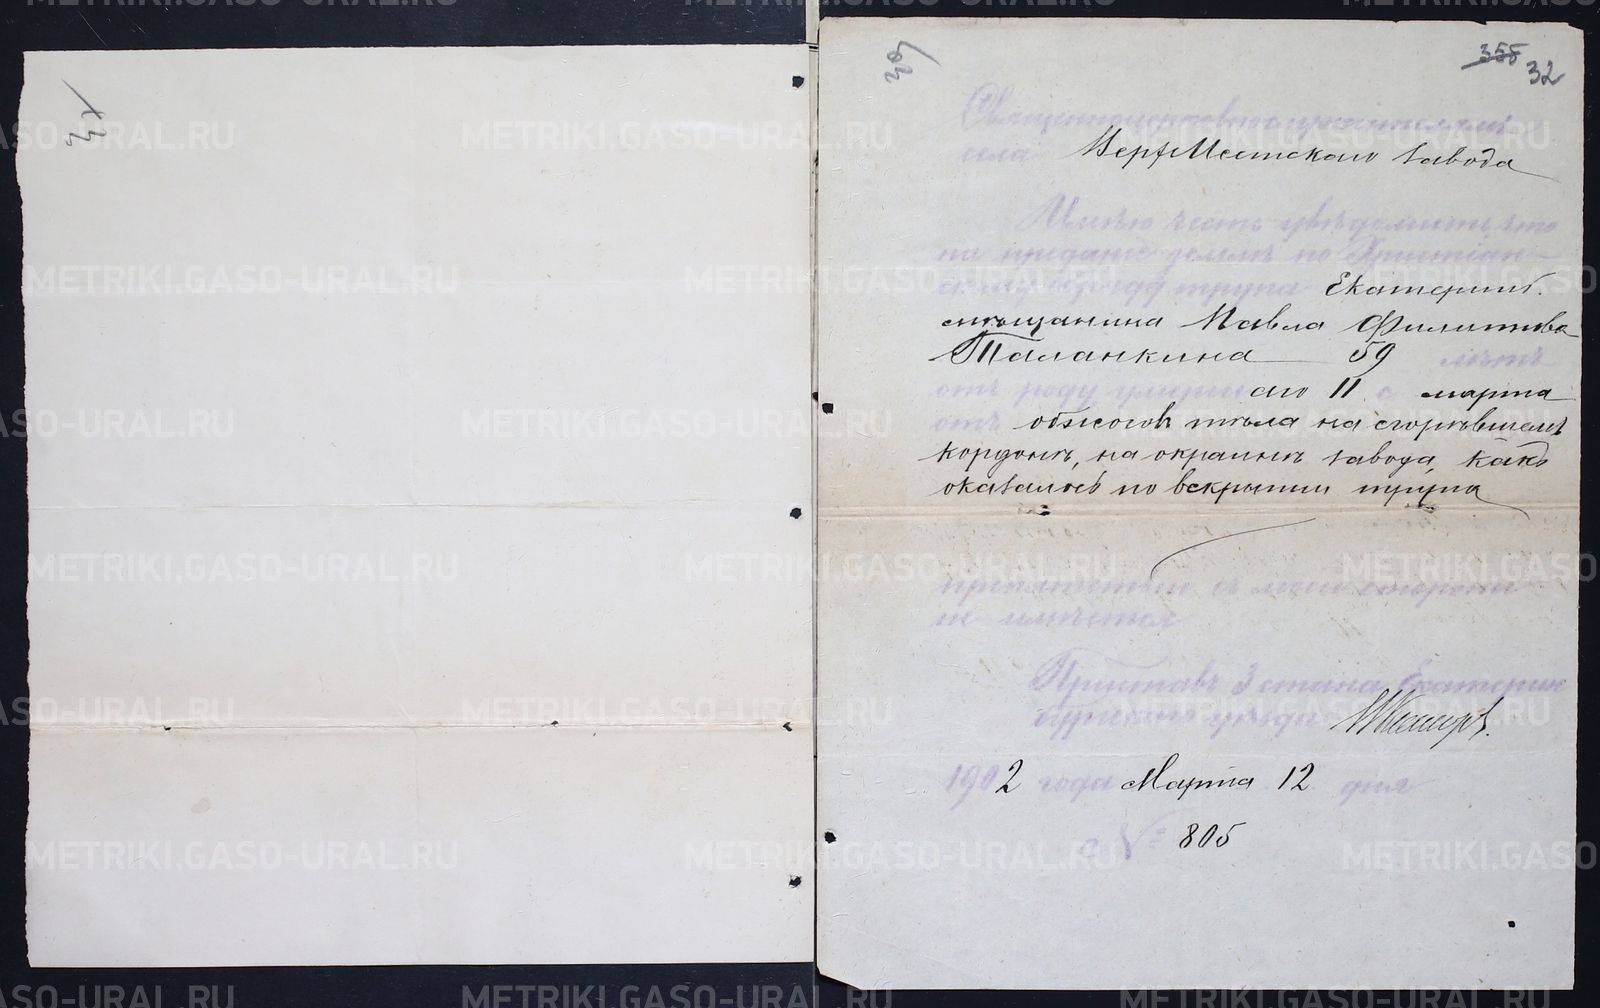 355
32
Священноцерковнослужителямъ
села Верх-Исетскаго завода
Имѣю честь увѣдомить что
на преданіе землѣ по Христіан-
скому обряду трупа Екатеринб.
мѣщанина Павла Филиппова
Таланкина 59 лѣтъ
отъ роду умершаго 11 с марта
отъ обжоговъ тѣла на сгорѣвшемъ
кордонѣ, на окраинѣ завода, какъ
оказалось по вскрытіи трупа
препятствій съ моей стороны
не имѣется
Приставъ 3 стана Екатерин
бургскаго уѣзда
1902 года Марта 12 дня
№ 805
METRIKI.GASO-URAL.RU